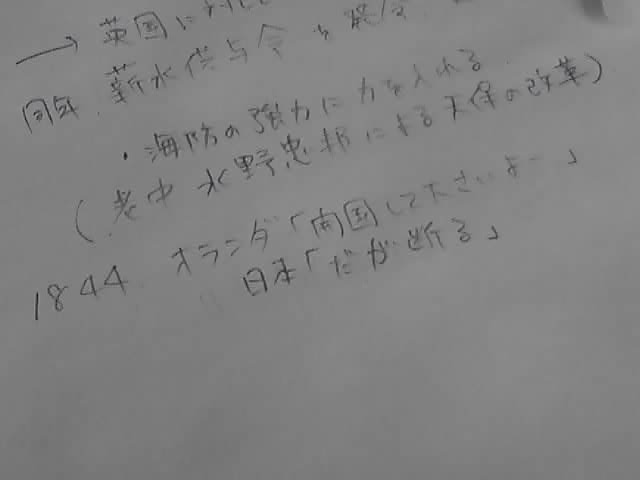 → 英国に対し
同年 薪水供与令を発令
・海防の強力に力を入れる
(老中 水野忠邦による天保の改革)
1844 オランダ「開国して下さいよー」
日本「だが断る」